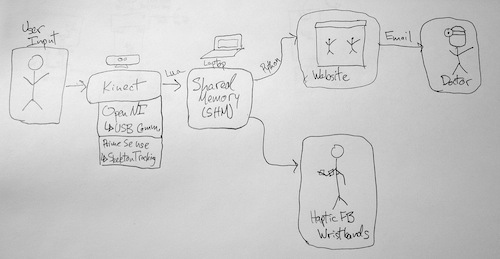 User
Input
Kinect
OpenNI
↳USB Comm.
Prime Sense
↳Skeleton Tracking
Lua
Laptop
Shared
Memory
(SHM)
Python
Website
Email
Doctor
Haptic FB
Wristbands